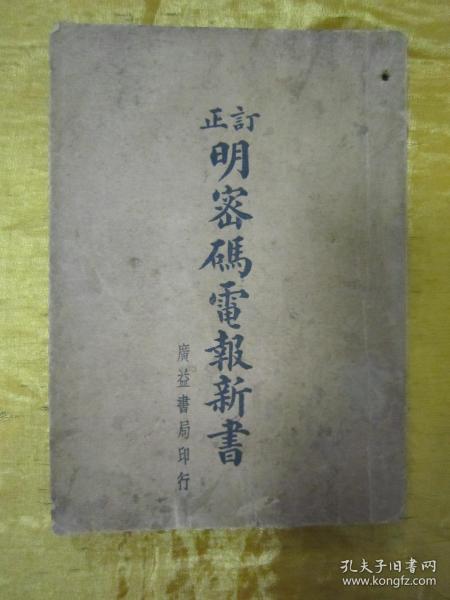 訂正
明密碼電報新書
廣益書局印行
孔夫子旧书网
www.kongfz.com